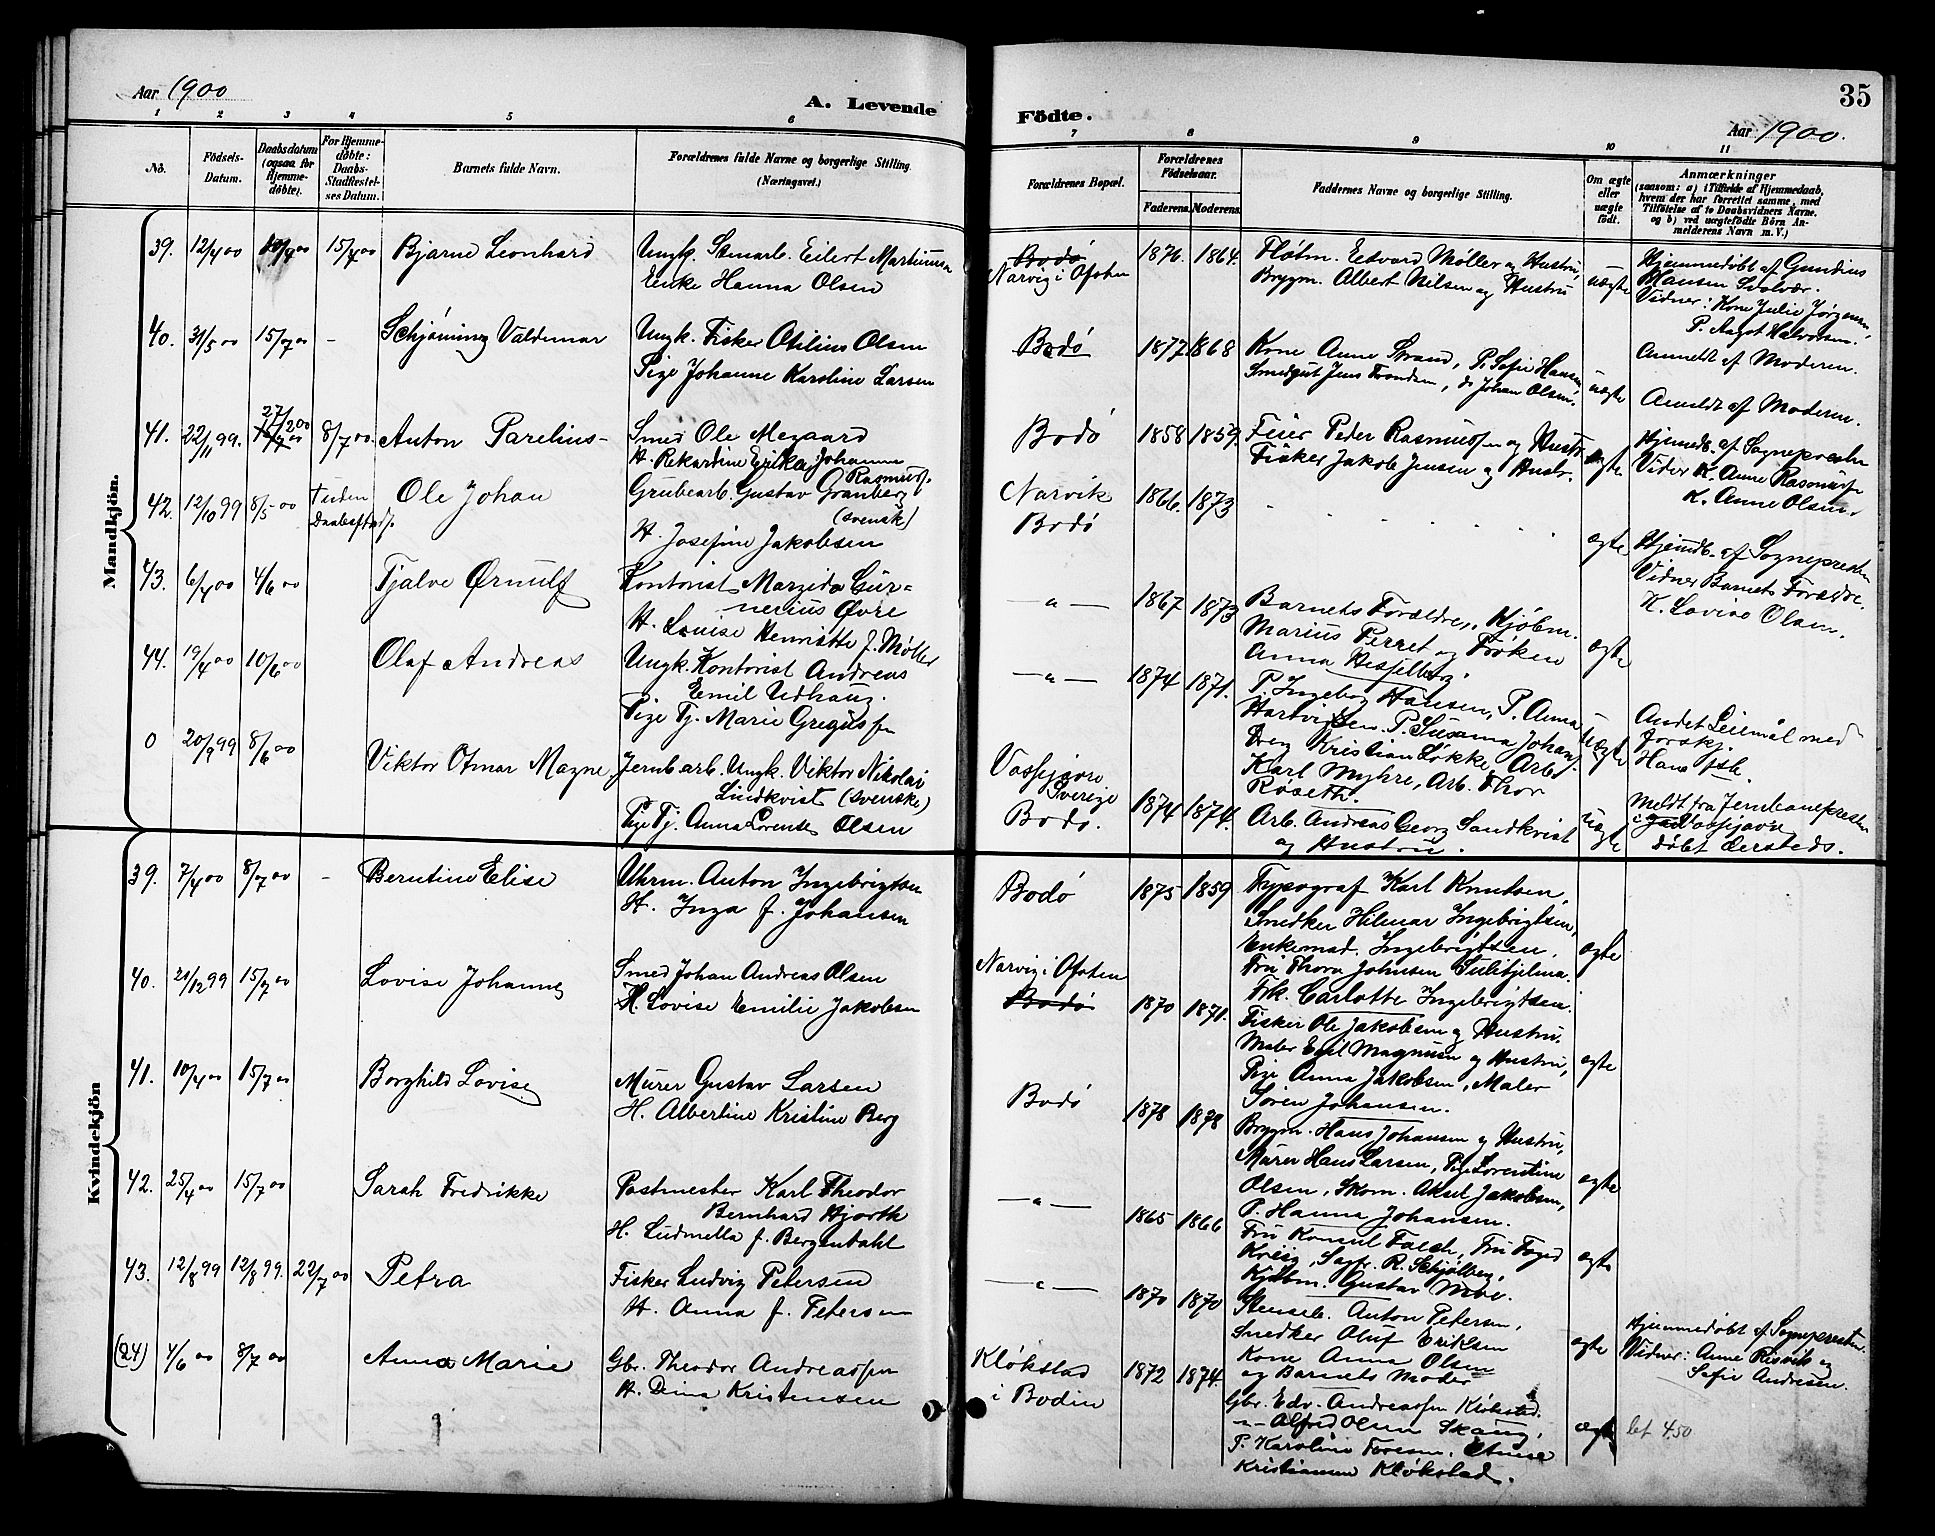 Aar 1900
A. Levende
1 2 3 4 5 6
No. Fødsels-Datum. Daabsdatum (ogsaa for Hjemmedøbte). For Hjemmedøbte: Daabs-Stadfæstelses Datum. Barnets fulde Navn. Forældrenes fulde Navne og borgerlige Stilling. (Næringsvei.)
Mandkjön.
39. 12/4 00 15/4 00 Bjarne Leonhard Ungk. Stenarb. Eilert Martinusen
Enke Hanna Olsen
40. 31/5 00 15/7 00 - Schjøning Valdemar Ungk. Fisker Otilius Olsen
Pige Johanne Karoline Larsen
41. 22/11 99. 27/2 00 8/7 00. Anton Parelius Smed Ole Megaard
H. Rekardine Erika Johanna
Rasmuss.
42. 12/10 99 8/5 00 Ole Johan Grubearb. Gustav Granberg
(svensk)
H. Josefine Jakobsen
43. 6/4 00 4/6 00 Tjalve Ørnulf Kontorist Marzida Gur=
nerius Øvre
H. Louise Henriette f. Møller
44. 19/4 00 10/6 00 Olaf Andreas Ungk. Kontorist Andreas
Emil Udhaug.
Pige Tj. Marie Gregussen
0 20/9 99 8/6 00 Viktor Otmar Magne. Jernb.arb. Ungk. Viktor Nikolai
Lindkvist (svenske)
Pige Tj. Anna Lorentse Olsen
Kvindekjön
39. 7/4 00 8/7 00 - Berntine Elise Uhrm. Anton Ingebrigtsen
H. Inga f. Johansen
40. 21/12 99 15/7 00 Lovise Johanne Smed Johan Andreas Olsen
H. Lovise Emilie Jakobsen
41. 10/4 00 15/7 00 Borghild Lovise Murer Gustav Larsen
H. Albertine Kristine Berg
42. 25/4 00 15/7 00 Sarah Fredrikke Postmester Karl Theodor
Bernhard Hjorth
H. Ludmella f. Bergendahl
43. 12/8 99 12/8 99. 22/7 00 Petra Fisker Ludvig Petersen
H. Anna f. Petersen
(24) 4/6 00 8/7 00 Anna Marie Gbr. Theodor Andreassen
H. Dina Kristensen
35
Födte.
Aar 1900.
7 8 9 10 11
Forældrenes Bopæl. Forældrenes Fødselsaar. Faderens. Moderens. Faddernes Navne og borgerlige Stilling. Om ægte eller uægte født. Anmærkninger
(saasom: a) i Tilfælde af Hjemmedaab, hvem der har forrettet samme, med Tilføielse af to Daabsvidners Navne, og b) ved uægtefødte Børn Anmelderens Navn m. V.)
Bodø
Narvig i Ofoten 1876. 1864. Fløtm. Edvard Møller og Hustru,
Brygm. Albert Nilsen og Hustru uægte
Hjemmedøbt af Gundius
Hansen Svolvær.
Vidner: Kone Julie Jørgensen
P. Aagot Halvorsen.
Bodø 1877. 1868 Kone Anne Strand, P. Sofie Hansen,
Smedgut Jens Trondsen, do Johan Olsen. uægte
Anmeldt af Moderen.
Anmeldt af Moderen.
Bodø 1858 1859. Feier Peder Rasmussen og Hustr.
Fisker Jakob Jensen og Hustr. ægte
Hjemdb. af Sognepresten
Vidner K. Anne Rasmussen
K. Anne Olsen.
Narvik
Bodø 1866. 1873 ægte
Hjemdb. af Sognepresten
Vidner Barnets Forældre.
K. Lovise Olsen.
—"— 1867 1873 Barnets Forældre, Kjøbm.
Marius Perret og Frøken
Anna Hesselberg. ægte
—"— 1874 1871. P. Ingeborg Hansen, P. Anna
Hartvigsen, P. Susanna Johans.
Dreg Kristian Løkke, Arb.
Karl Myhre, Arb. Thor
Røseth. uægte
Andet Leiermål med
forskj.
Vassijaure
Sverige
Bodø. 1874 1874. Arb. Andreas Georg Sandkvist
og Hustru. uægte
Meldt fra Jernbanepresten
i Vassijaure
døbt dersteds.
Bodø 1875 1859 Typograf Karl Knudsen,
Snedker Hilmar Ingebrigtsen,
Enkemad. Ingebrigtsen,
Fru Thora Johnsen Sulitjelma.
Frk. Carlotte Ingebrigtsen. ægte
Narvig i Ofoten
Bodø 1870 1871. Fisker Ole Jakobsen og Hustru.
Maler Emil Magnusen og Hustru,
Pige Anna Jakobsen, Maler
Søren Johansen. ægte
Bodø 1878 1878 Brygm. Hans Johansen og Hustru,
Murer Hans Larsen, Pige Lorentine
Olsen, Skom. Aksel Jakobsen,
P. Hanna Johansen. ægte
—"— 1865 1866 Fru Konsul Falch, Fru Foged
Kreig, Sagfr. R. Schjølberg,
Kjøbm. Gustav Moe. ægte
—"— 1870 1870 Anton Petersen,
Snedker Oluf Eriksen
Kone Anna Olsen
og Barnets Moder ægte
Hjemmedøbt af Sognepresten.
Vidner: Anne Risvik og
Sofie Andresen.
Kløkstad
i Bodin 1872 1874. Gbr. Edv. Andreassen Kløkstad.
—"— Alfred Olsen Skaug,
P. Karoline
Kristiansen Kløkstad. ægte
bet 4.50